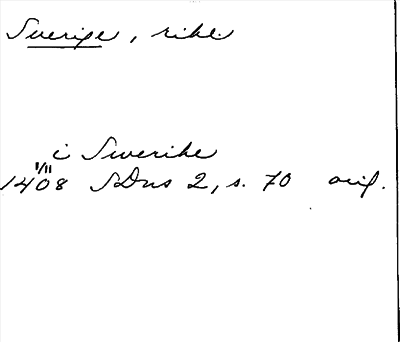 Sverige, rike
i Swerike
1/11
1408 SDns 2, s. 70 orig.